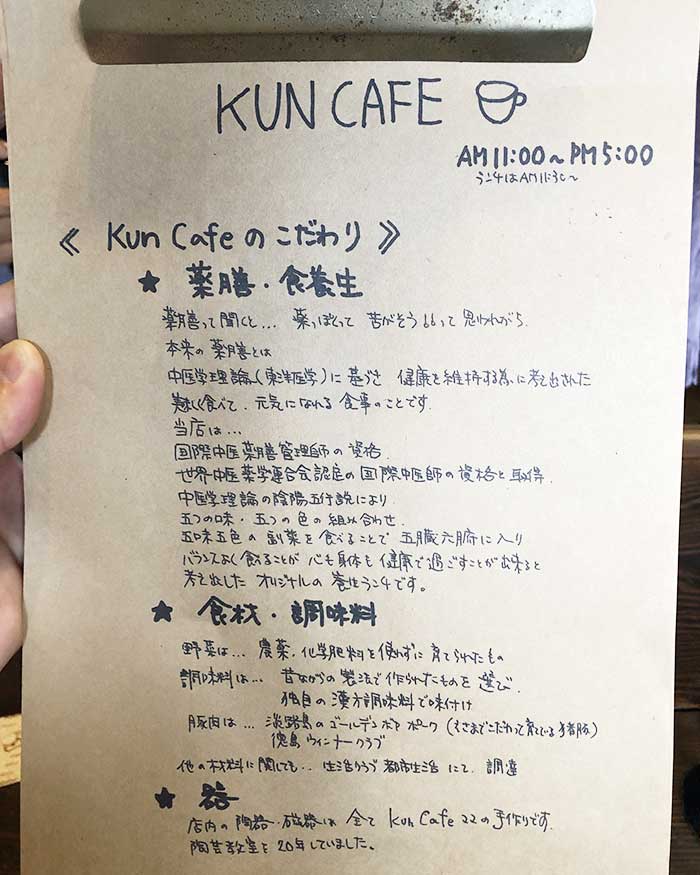 KUN CAFE
AM 11:00〜PM 5:00
ランチはAM11:30〜
《 Kun Cafe の こだわり 》
★ 薬膳・食養生
薬膳って聞くと… 薬っぽくって 苦がそう〃って 思われがち.
本来の 薬膳とは
中医学理論(東洋医学)に 基づき 健康を維持する為に考え出された
美味しく食べて、元気になれる 食事のことです.
当店は…
国際中医薬膳管理師の 資格.
世界中医薬学連合会認定の 国際中医師の 資格を取得.
中医学理論の陰陽五行説により.
五つの味・五つの色の 組み合わせ.
五味五色の 副菜を 食べることで 五臓六腑に入り
バランスよく 食べることが 心も身体も 健康で過ごすことが 出来ると
考え出した オリジナルの 養生ランチです。
★ 食材・調味料
野菜は… 農薬・化学肥料を使わずに 育てられたもの
調味料は… 昔ながらの 製法で作られたものを 選び.
独自の 漢方調味料で味付け
豚肉は… 淡路島のゴールデンボア ポーク (えさまでこだわって育てている 猪豚)
徳島ウィンナークラブ
他の材料に関しても… 生活クラブ 都市生活 にて 調達
★ 器
店内の 陶器・磁器は 全て Kun Cafe 22の手作りです.
陶芸教室を 20年していました。